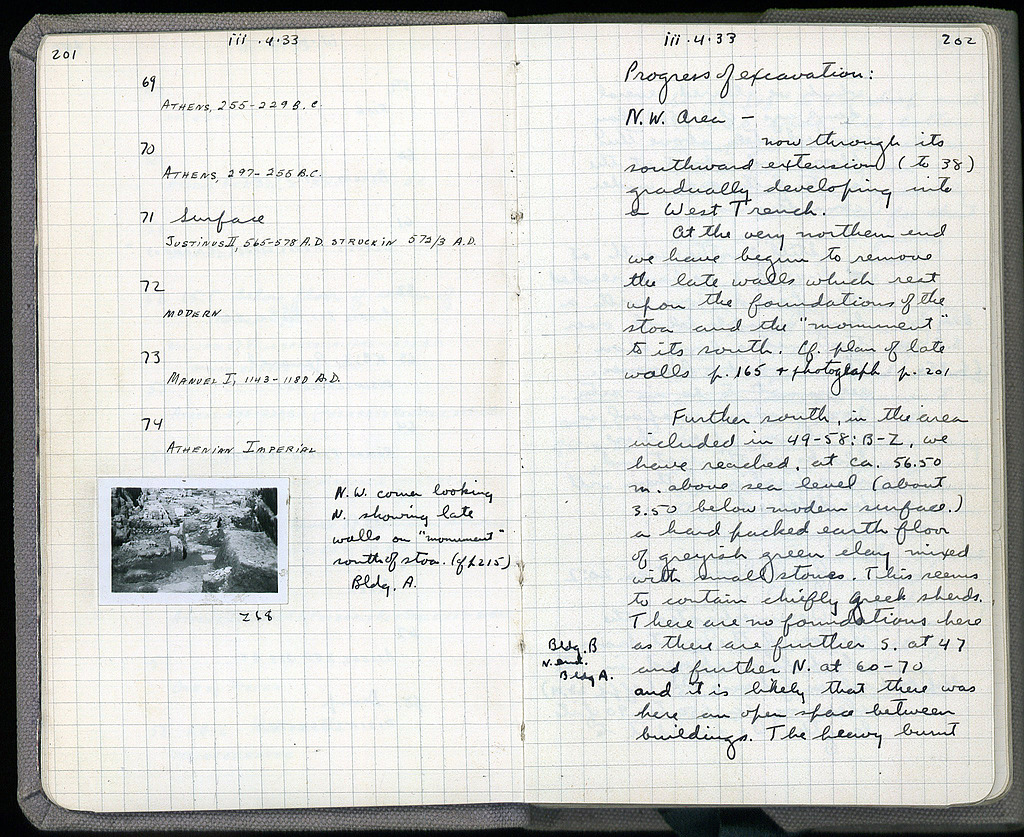 201
iii.4.33
69
ATHENS, 255-229 B.C.
70
ATHENS, 297-256 B.C.
71 Surface
JUSTINUS II, 565-578 A.D. STRUCK IN 572/3 A.D.
72
MODERN
73
MANUEL I, 1143-1180 A.D.
74
ATHENIAN IMPERIAL
N.W. corner looking
N. showing late
walls on "monument"
south of stoa. (cf p. 215)
Bldg. A.
268
iii.4.33
202
Progress of excavation:
N.W. Area —
now through its
southward extension (to 38)
gradually developing into
a West Trench.
At the very northern end
we have begun to remove
the late walls which rest
upon the foundations of the
stoa and the "monument"
to its south. Cf. plan of late
walls p. 165 + photograph p. 201
Further south, in the area
included in 49-58: B-Z, we
have reached, at ca. 56.50
m. above sea level (about
3.50 below modern surface.)
a hard packed earth floor
of greyish green clay mixed
with small stones. This seems
to contain chiefly Greek sherds.
There are no foundations here
as there are further S. at 47
and further N. at 60-70
and it is likely that there was
here an open space between
buildings. The heavy burnt
Bldg. B
N. end.
Bldg A.